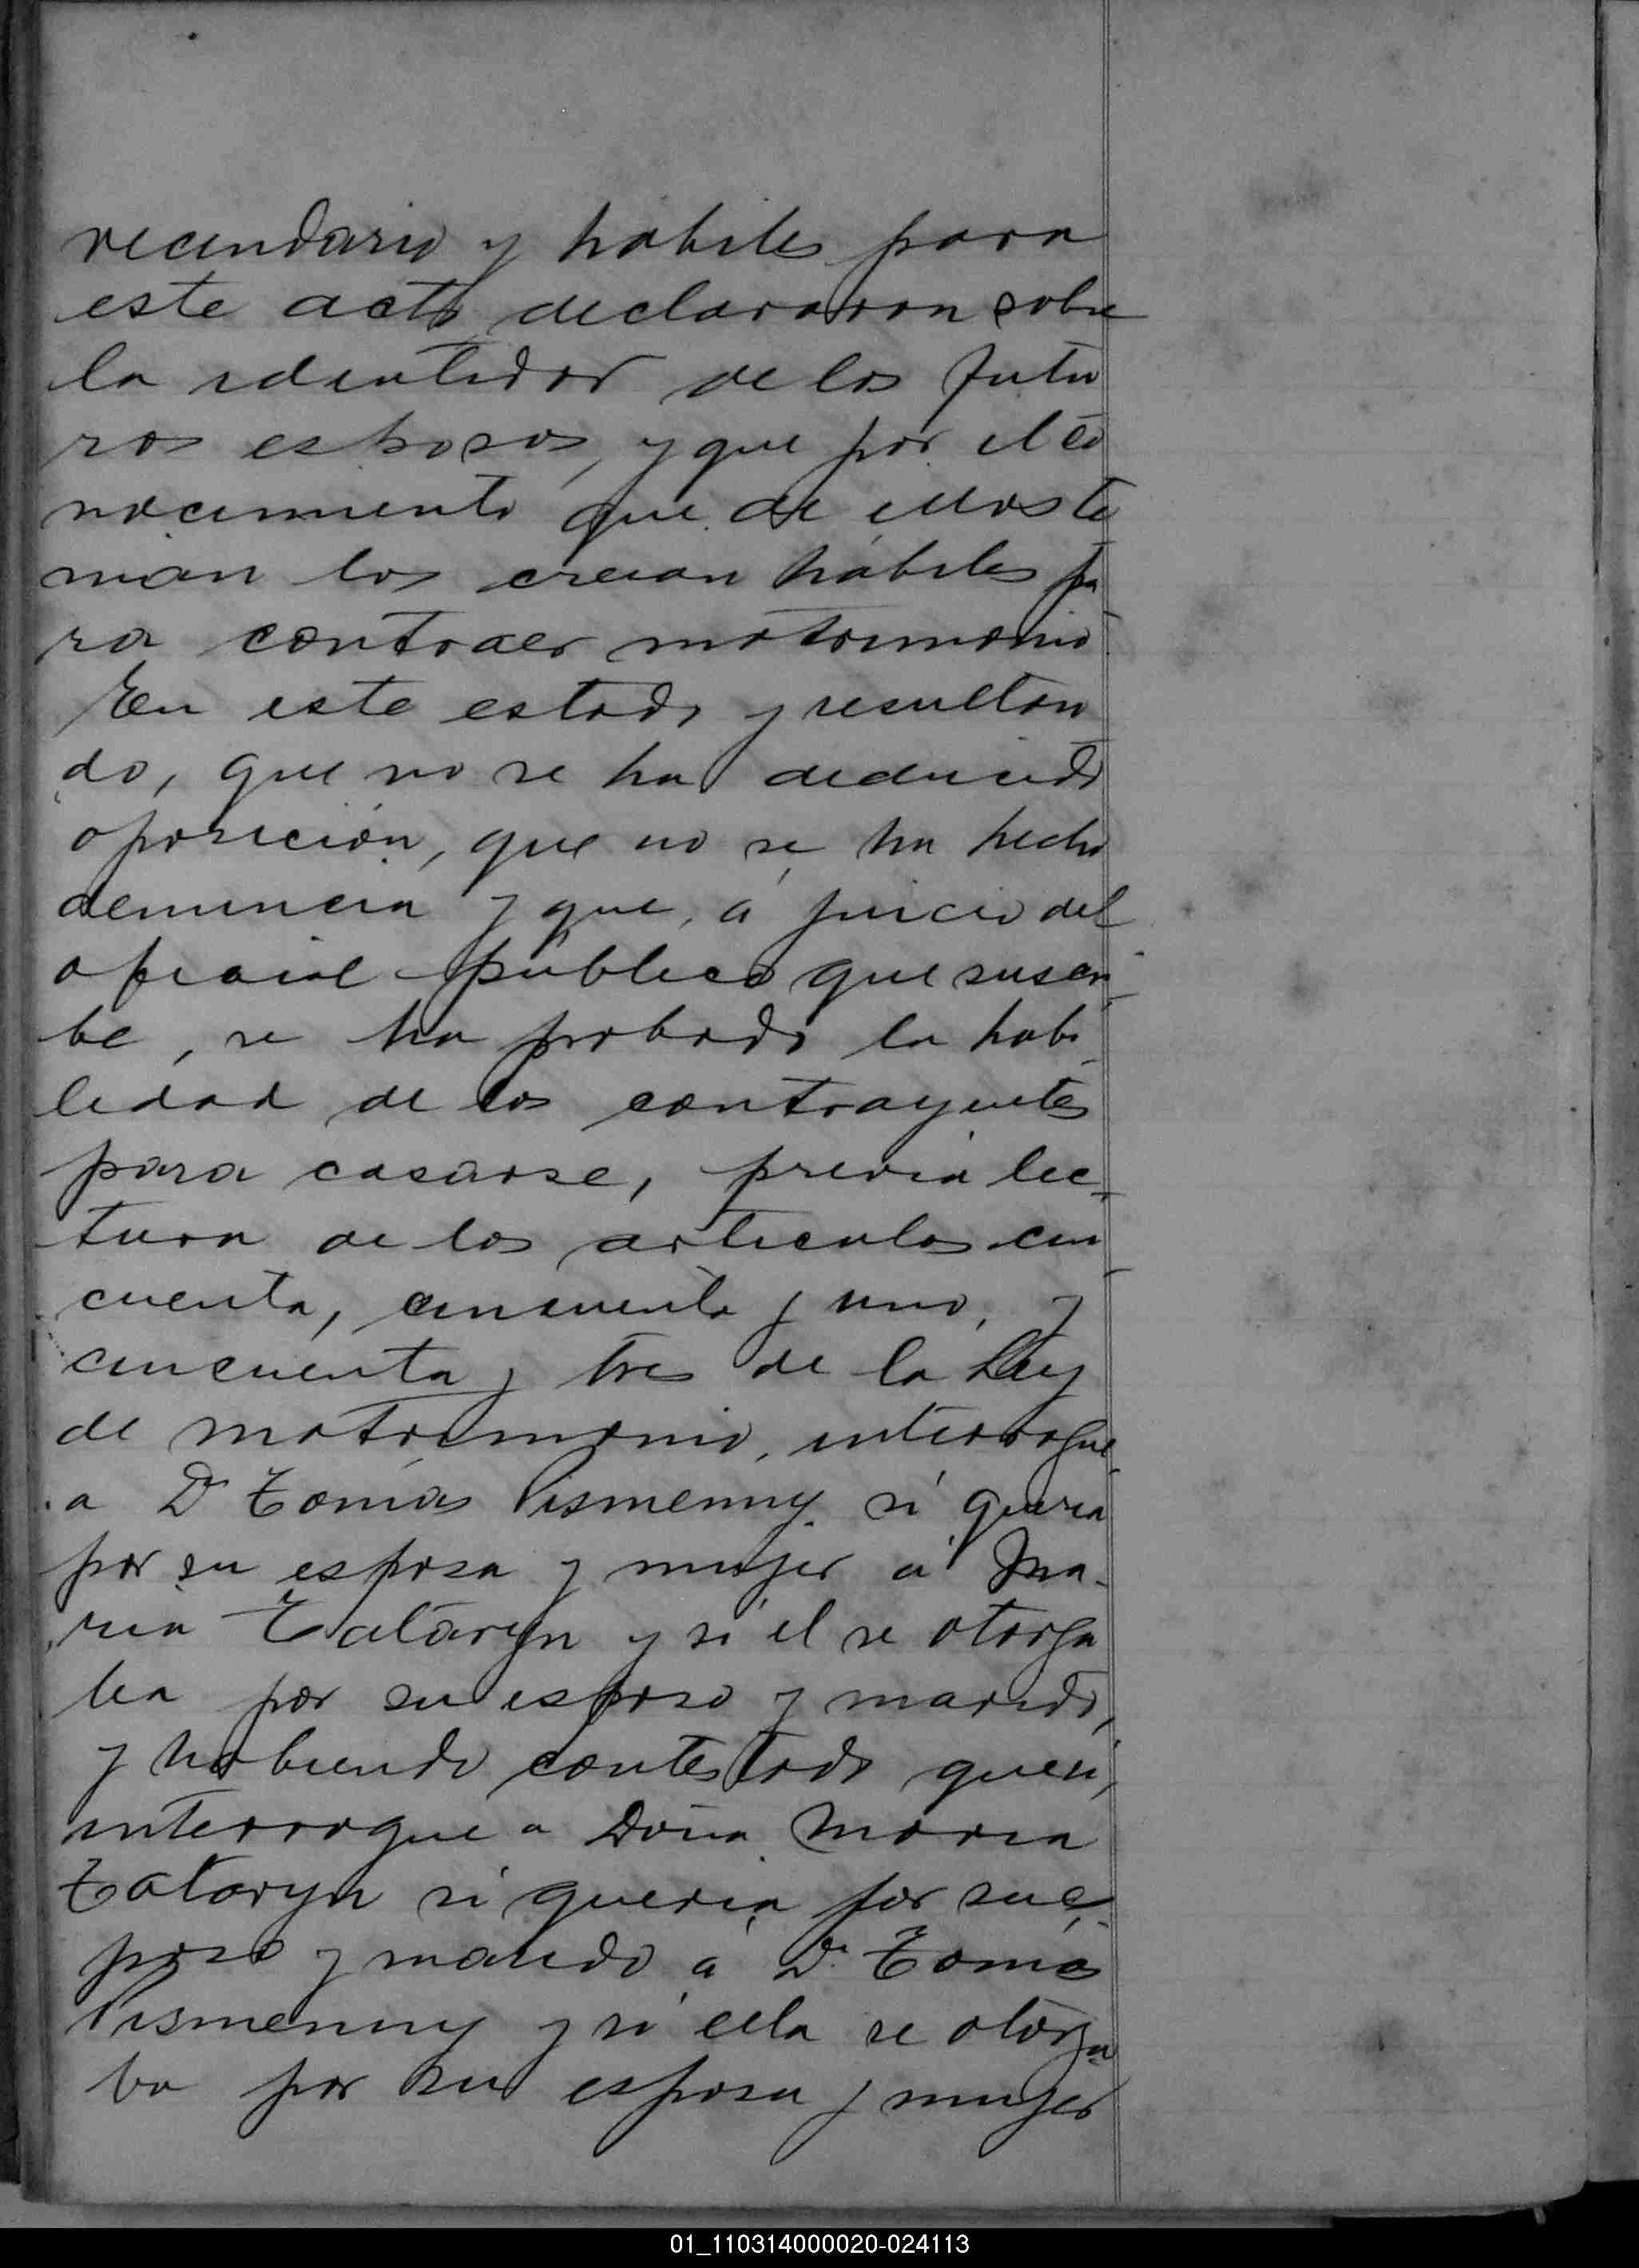 vecindario y habiles para
este acto declararon sobre
la identidad de los futu
ros esposos, y que por el co
nocimiento que de ellos te
nian los creian hábiles pa
ra contraer matrimonio.
En este estado y resultan
do, que no se ha deducido
oposición, que no se ha hecho
denuncia y que, á juicio del
oficial público que suscri
be, se ha probado la habi
lidad de los contrayentes
para casarse, previa lec-
tura de los articulos cin
cuenta, cincuenta y uno, y
cincuenta y tres de la Ley
de matrimonio, interrogue
a Dn Tomás Pismenny si queria
por su esposa y mujer á Ma-
ria Tataryn y si el se otorga
ba por su esposo y marido,
y habiendo contestado que si,
interrogue a Doña Maria
Tataryn si queria por su es-
poso y marido á Dn Tomás
Pismenny y si ella se otorga
ba por su esposa y mujer
01_110314000020-024113